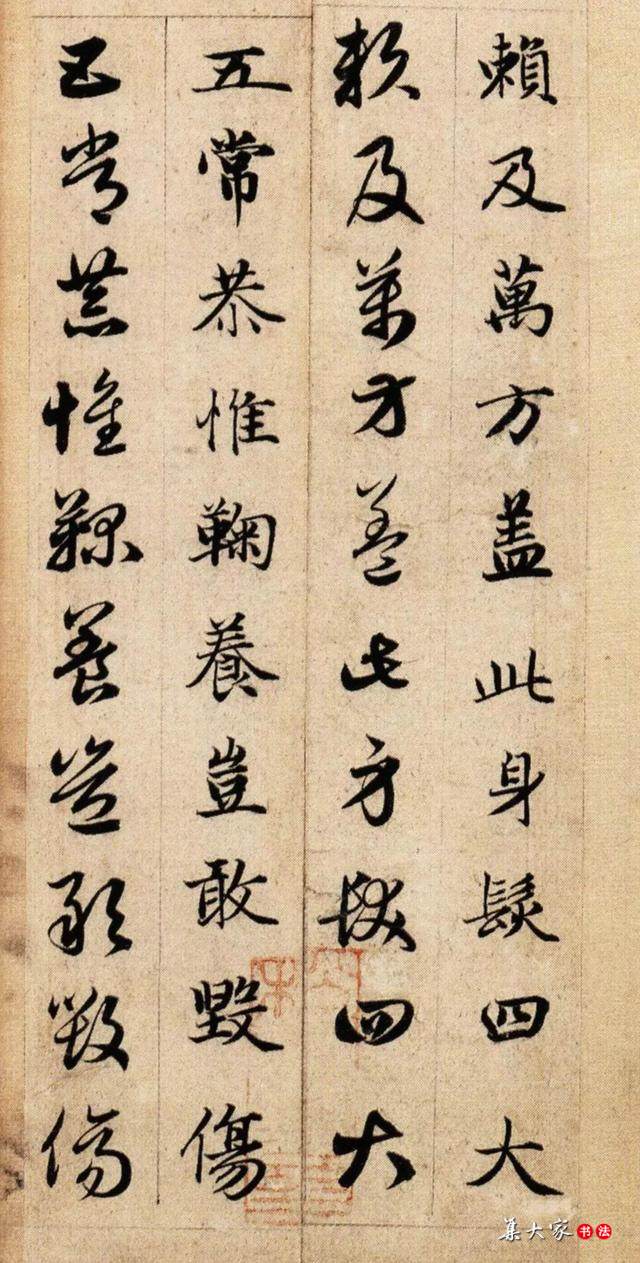 賴及萬方盖此身髮四大
賴及萬方盖此身髮四大
五常恭惟鞠養豈敢毀傷
五常恭惟鞠養豈敢毀傷
集大家书法